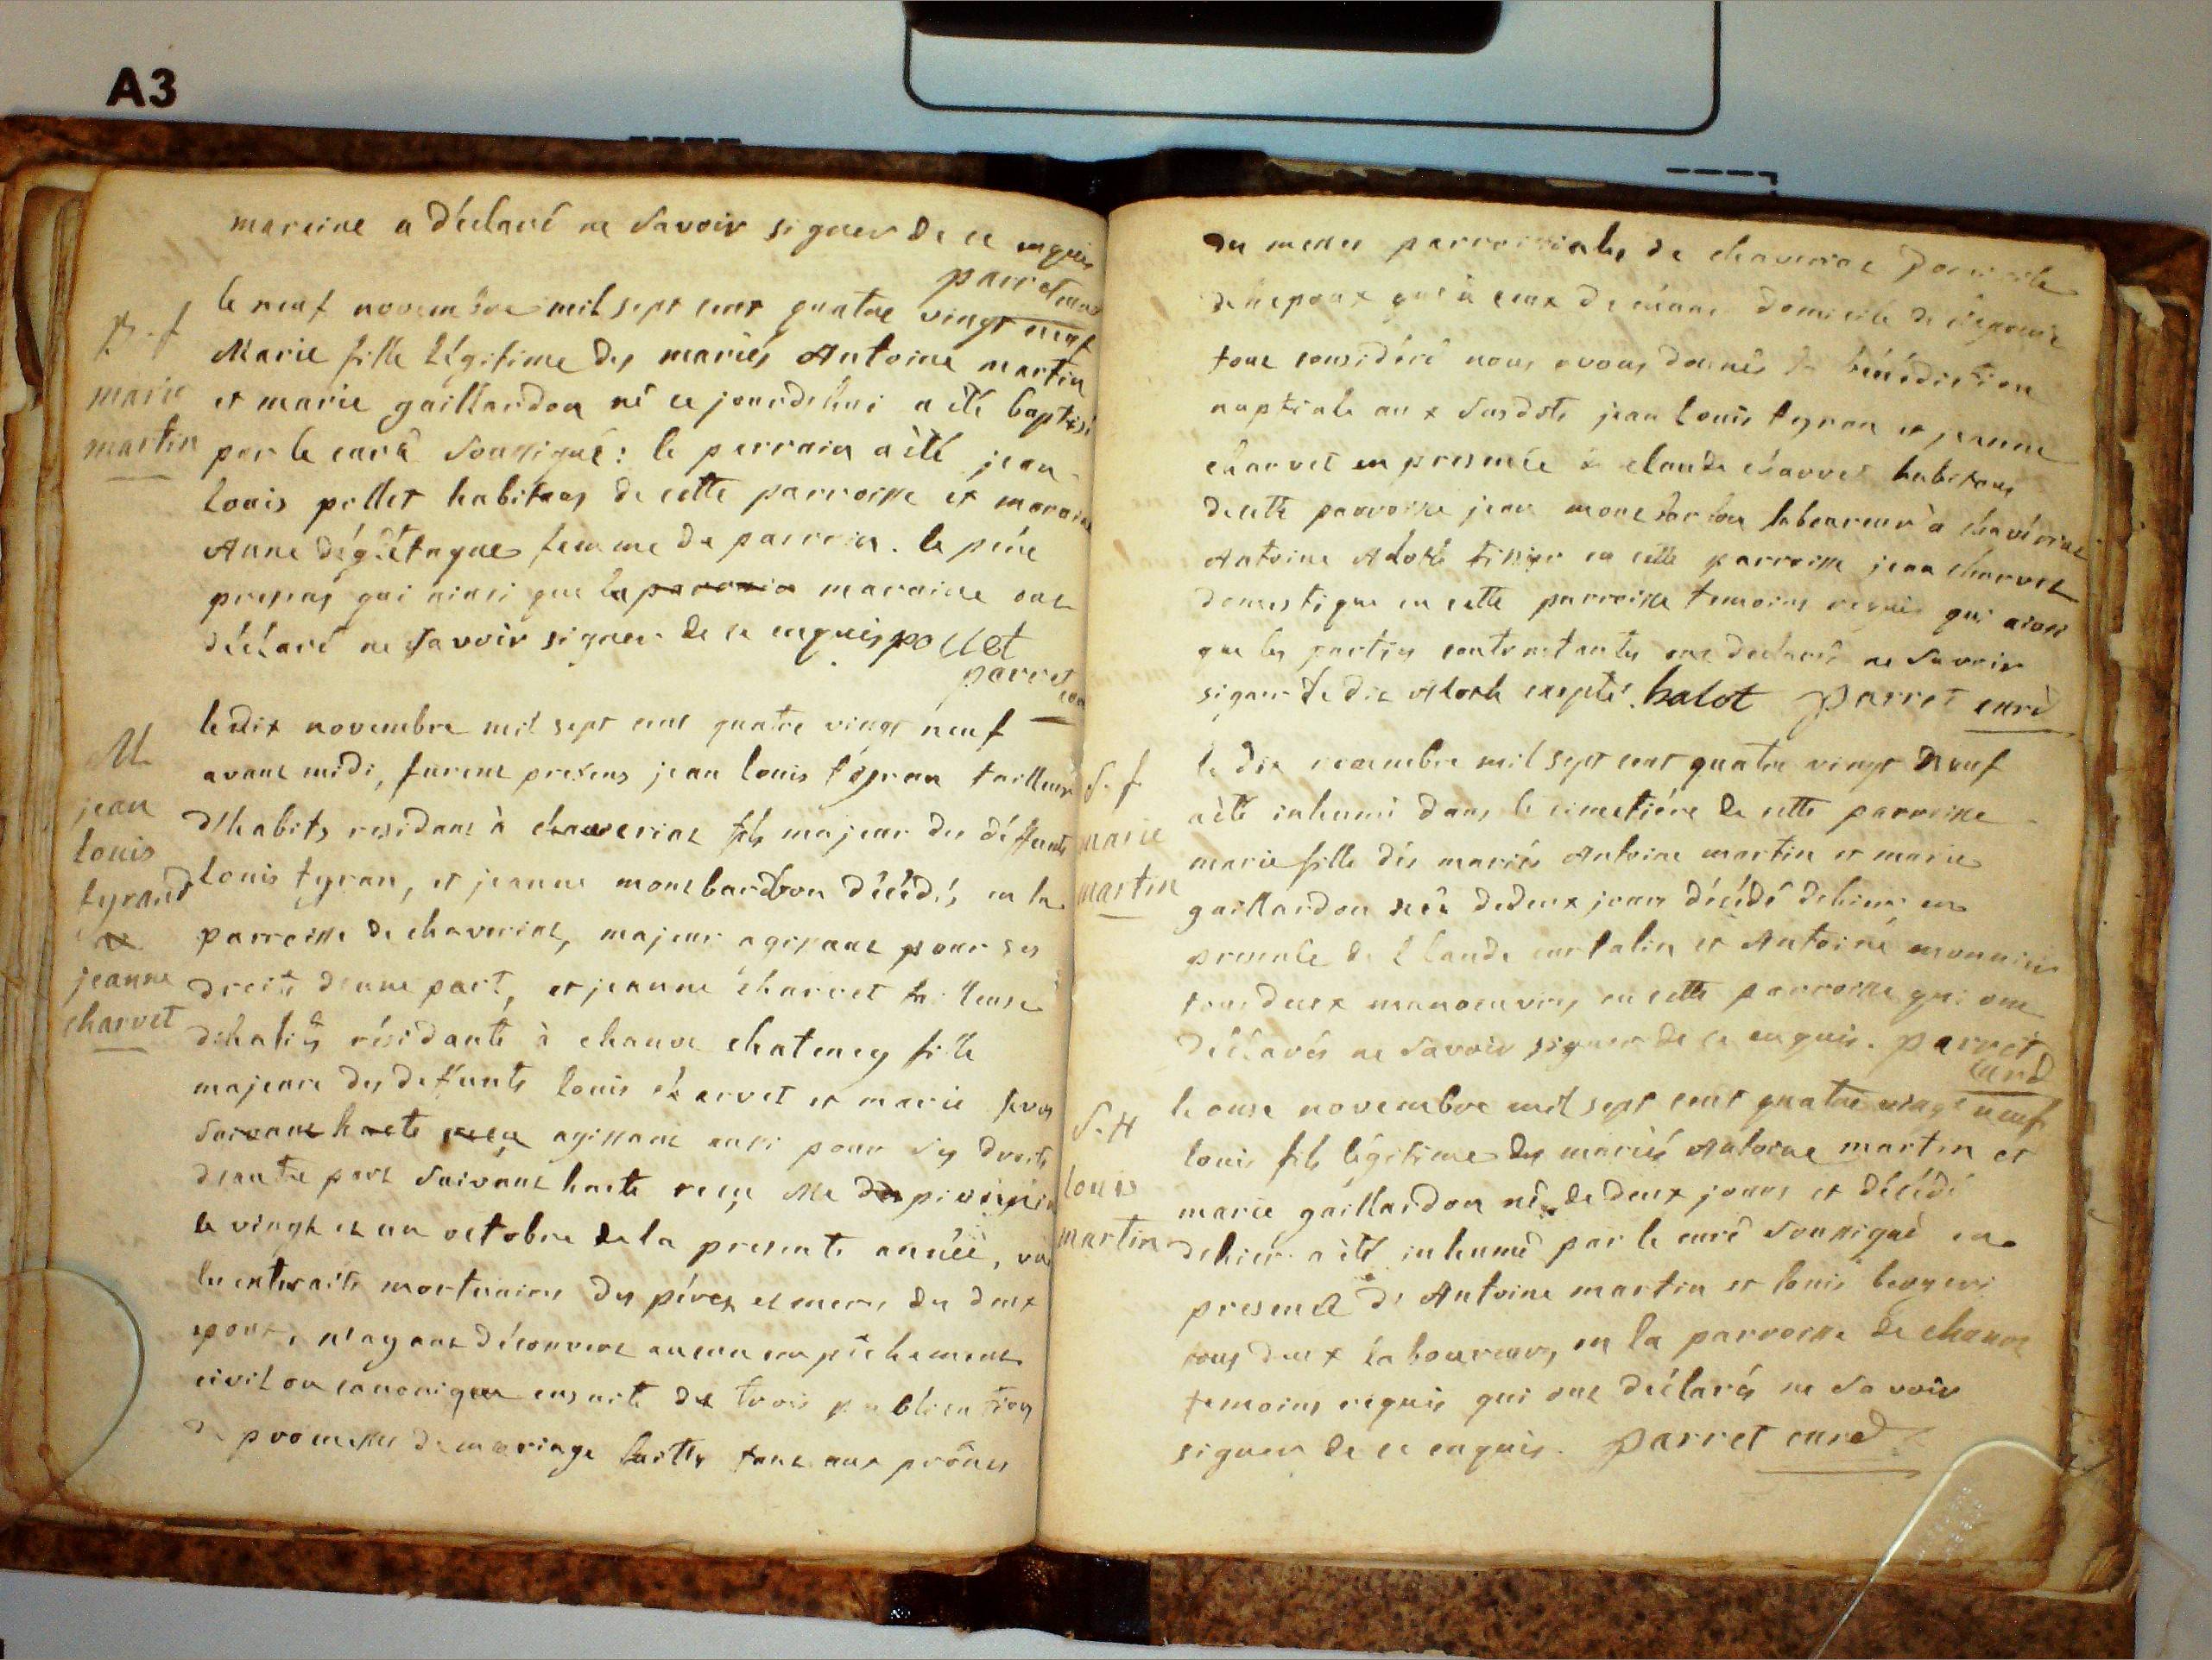 A3
mareine a déclaré ne savoir signer de ce enquis
parret curé
le neuf novembre mil sept cent quatre vingt neuf
B. f
marie
martin
Marie fille légitime des mariés Antoine martin
et marie gaillardon né ce jourdehui a été baptisé
par le curé soussigné: le parrain a été jean
louis pollet habitans de cette parroisse et maraine
Anne déglétagnes femme du parrain. le père
presens qui ainsi que la parrain maraine ont
déclaré ne savoir signer de ce enquis pollet
parret curé
M
jean
louis
tyrand
et
jeanne
charvet
le dix novembre mil sept cent quatre vingt neuf
avant midi, furent presens jean louis tyran tailleur
d'habits residant à chaveriat fils majeur des deffunts
louis tyran, et jeanne montbarbon décédés en la
parroisse de chaveriat, majeur agissant pour ses
droits d'une part, et jeanne charvet tailleuse
d'habits résidante à chanoz chatenay fille
majeure des deffunts louis charvet et marie
suivant l'acte reçu agissant aussi pour ses droits
d'autre part suivant l'acte reçu Me
le vingt et un octobre de la presente année, vu
les extraits mortuaires des pères et meres des deux
epoux, n'ayant découvert aucun empêchement
civil ou canonique ensuite de trois publications
de promesses de mariage faittes tant aux prônes
des messes parroissiales de chaveriat domicile
de l'epoux qu'à ceux de chanoz domicile de l'epouse
tout considéré nous avons donnés la bénédiction
nuptiale aux susdits jean louis tyran et jeanne
charvet en presence de claude charvet habitans
de cette parroisse jean montbarbon laboureur à chavériat
Antoine Alotte tissier en cette parroisse jean charvet
domestique en cette parroisse temoins requis qui ainsi
que les parties contractantes ont declaré ne savoir
signer le dit Alotte excepté. halot parret curé
S. f
marie
martin
le dix novembre mil sept cent quatre vingt neuf
a été inhumé dans le cimetière de cette parroisse
marie fille des mariés Antoine martin et marie
gaillardon née de deux jours décédé dehier, en
presence de Claude curtalin et Antoine monnier
tous deux manoeuvres en cette parroisse qui ont
déclarés ne savoir signer de ce enquis. parret
curé
S. H
louis
martin
le onse novembre mil sept cent quatre vingt neuf
louis fils légitime des mariés Antoine martin et
marie gaillardon né de deux jours et décédé
dehier a été inhumé par le curé soussigné en
presence d' Antoine martin et louis
tous deux laboureurs en la parroisse de chanoz
temoins requis qui ont déclarés ne savoir
signer de ce enquis. parret curé